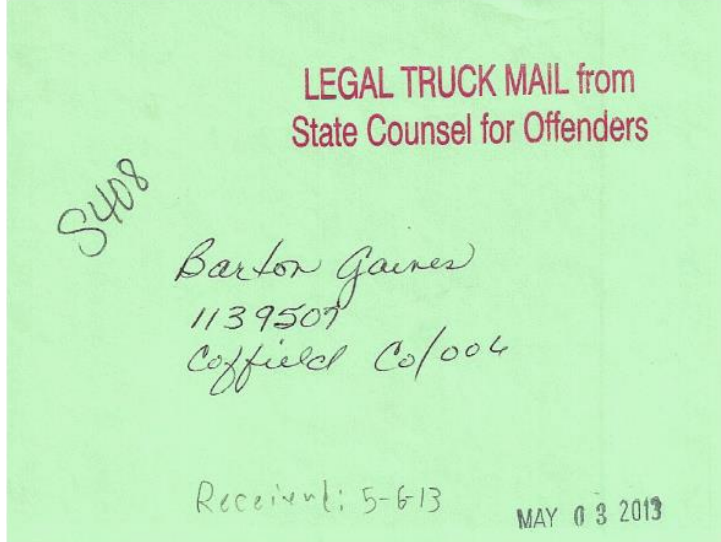 LEGAL TRUCK MAIL from
State Counsel for Offenders
S408
Barton Gaines
1139507
Coffield Co/006
Received: 5-6-13
MAY 03 2013